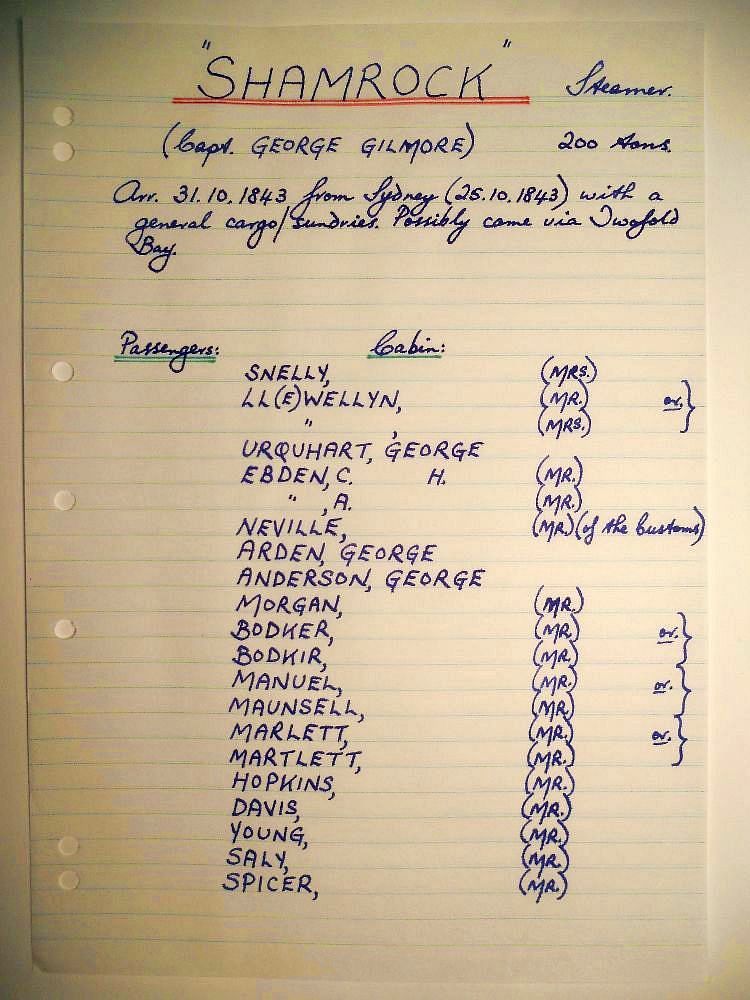 "SHAMROCK" Steamer.
(Capt. GEORGE GILMORE) 200 tons.
Arr. 31.10.1843 from Sydney (25.10.1843) with a
general cargo/sundries. Possibly came via Twofold
Bay.
Passengers: Cabin:
SNELLY, (MRS.)
LL(E)WELLYN, (MR.) or. }
" , (MRS.)
URQUHART, GEORGE
EBDEN, C. H. (MR.)
" , A. (MR.)
NEVILLE, (MR.) (of the Customs)
ARDEN, GEORGE
ANDERSON, GEORGE
MORGAN, (MR.)
BODKER, (MR.) or. }
BODKIR, (MR.)
MANUEL, (MR.) or. }
MAUNSELL, (MR.)
MARLETT, (MR.) or. }
MARTLETT, (MR.)
HOPKINS, (MR.)
DAVIS, (MR.)
YOUNG, (MR.)
SALY, (MR.)
SPICER, (MR.)